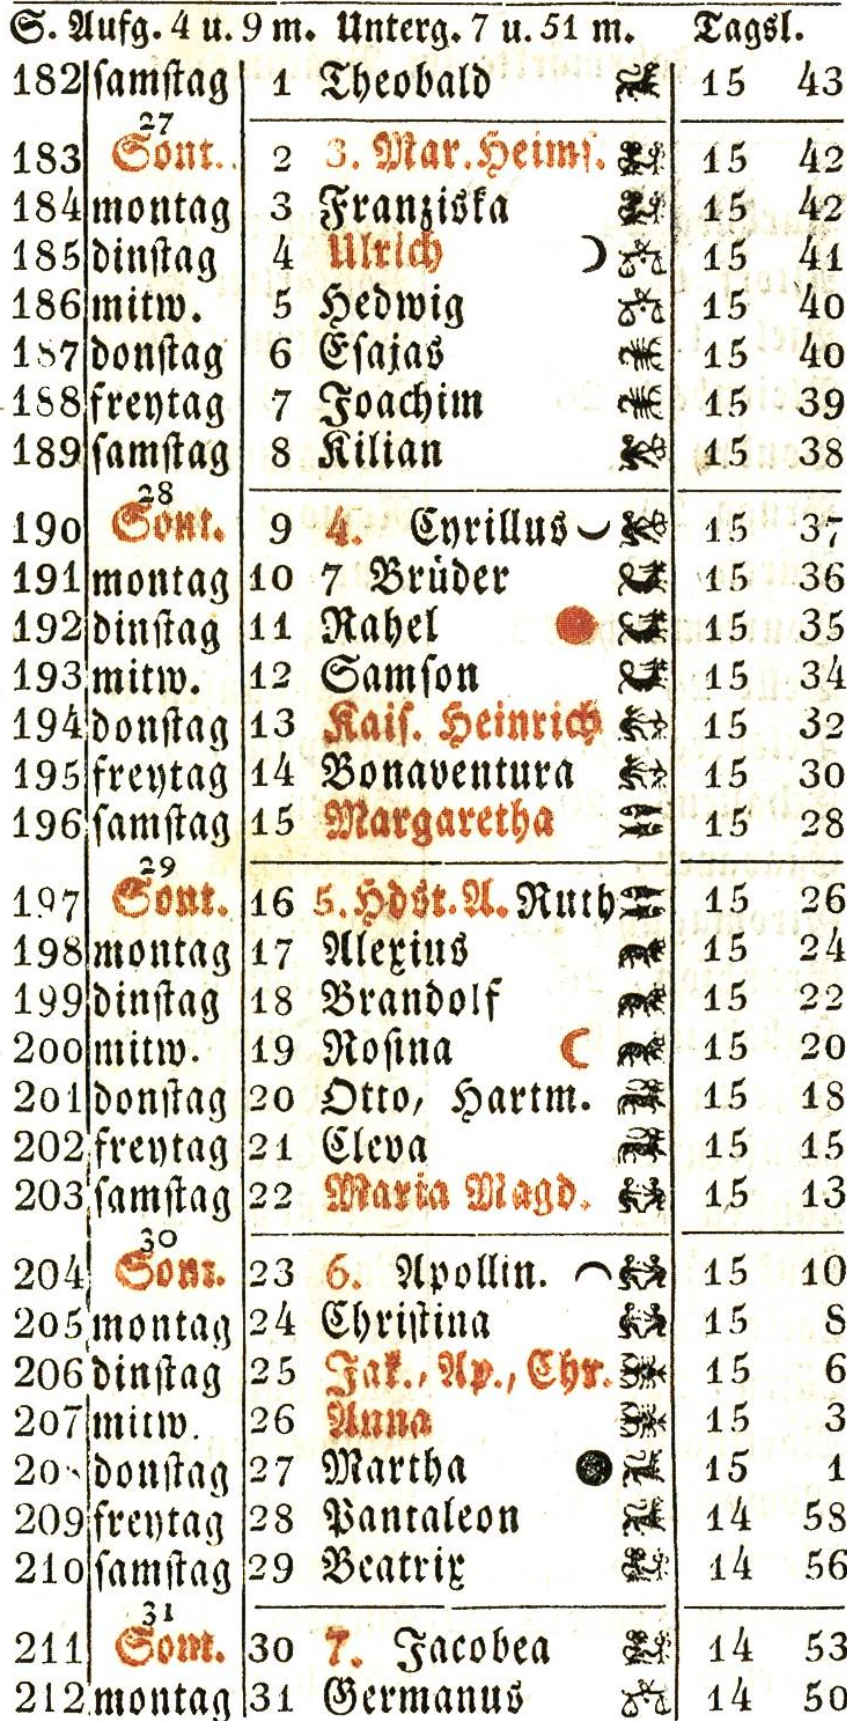 S. Aufg. 4 u. 9 m. Unterg. 7 u. 51 m. Tagsl.
182 samstag 1 Theobald 15 43
27
183 Sont. 2 3. Mar. Heims. 15 42
184 montag 3 Franziska 15 42
185 dinstag 4 Ulrich ☽ 15 41
186 mitw. 5 Hedwig 15 40
187 donstag 6 Esajas 15 40
188 freytag 7 Joachim 15 39
189 samstag 8 Kilian 15 38
28
190 Sont. 9 4. Cyrillus 15 37
191 montag 10 7 Brüder 15 36
192 dinstag 11 Rahel 15 35
193 mitw. 12 Samson 15 34
194 donstag 13 Kais. Heinrich 15 32
195 freytag 14 Bonaventura 15 30
196 samstag 15 Margaretha 15 28
29
197 Sont. 16 5. Hdst. A. Ruth 15 26
198 montag 17 Alexius 15 24
199 dinstag 18 Brandolf 15 22
200 mitw. 19 Rosina ☾ 15 20
201 donstag 20 Otto, Hartm. 15 18
202 freytag 21 Cleva 15 15
203 samstag 22 Maria Magd. 15 13
30
204 Sont. 23 6. Apollin. 15 10
205 montag 24 Christina 15 8
206 dinstag 25 Jak., Ap., Chr. 15 6
207 mitw. 26 Anna 15 3
20 donstag 27 Martha 15 1
209 freytag 28 Pantaleon 14 58
210 samstag 29 Beatrix 14 56
31
211 Sont. 30 7. Jacobea 14 53
212 montag 31 Germanus 14 50